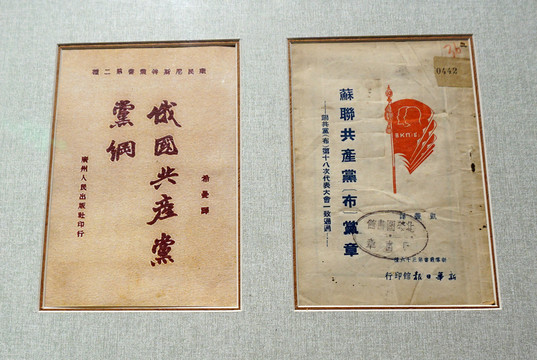 康民尼斯特叢書第二種
俄國共產黨
黨綱
希曼譯
廣州人民出版社印行
0442
蘇聯共產黨(布)黨章
——聯共黨(布)第十八次代表大會一致通過——
新華日報館印行